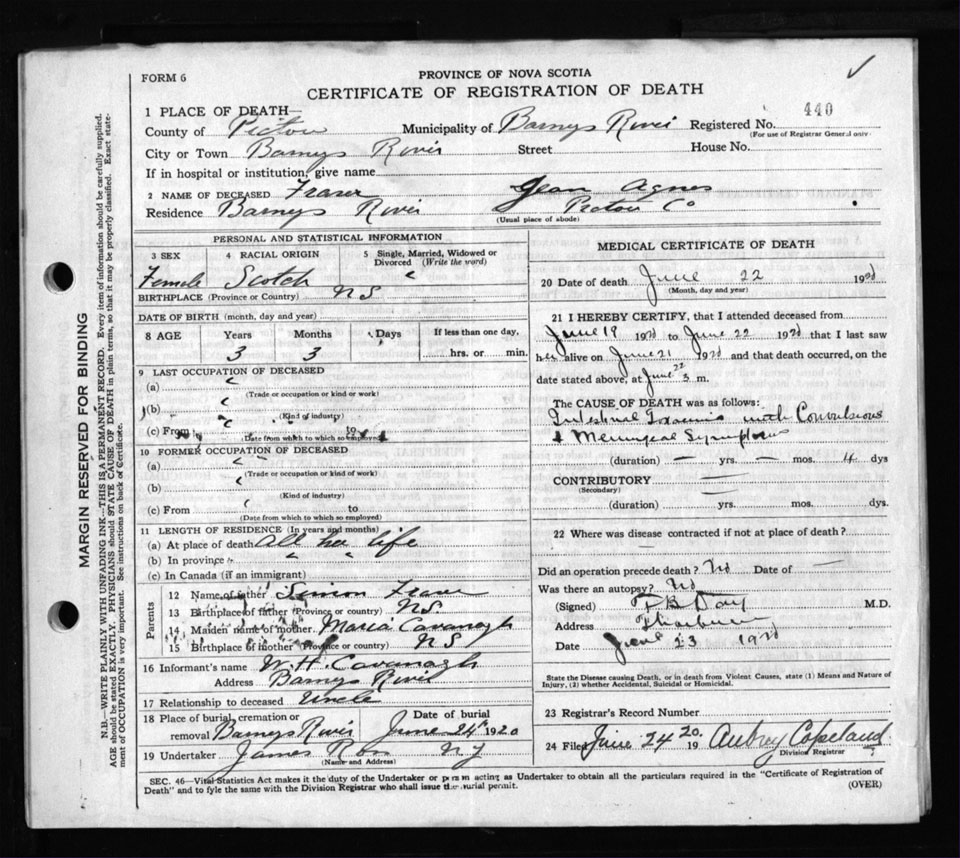 PROVINCE OF NOVA SCOTIA
FORM 6
CERTIFICATE OF REGISTRATION OF DEATH
1 PLACE OF DEATH—
County of Pictou Municipality of Barnys River Registered No. 440
(For use of Registrar General only.
City or Town Barnys River Street House No.
If in hospital or institution, give name
2 NAME OF DECEASED Fraser Jean Agnes
Residence Barnys River Pictou Co
(Usual place of abode)
PERSONAL AND STATISTICAL INFORMATION
3 SEX 4 RACIAL ORIGIN 5 Single, Married, Widowed or Divorced (Write the word)
Female Scotch
BIRTHPLACE (Province or Country) NS
DATE OF BIRTH (month, day and year)
8 AGE Years Months Days If less than one day,
3 3 hrs. or min.
9 LAST OCCUPATION OF DECEASED
(a)
(Trade or occupation or kind of work)
(b)
(Kind of industry)
(c) From to
(Date from which to which so employed)
10 FORMER OCCUPATION OF DECEASED
(a)
(Trade or occupation or kind of work)
(b)
(Kind of industry)
(c) From to
(Date from which to which so employed)
11 LENGTH OF RESIDENCE (In years and months)
(a) At place of death All her life
(b) In province " "
(c) In Canada (if an immigrant)
Parents
12 Name of father Simon Fraser
13 Birthplace of father (Province or country) NS
14 Maiden name of mother Maria Cavanagh
15 Birthplace of mother (Province or country) NS
16 Informant's name W. H. Cavanagh
Address Barnys River
17 Relationship to deceased Uncle
18 Place of burial, cremation or removal Barnys River Date of burial June 24th 1920
19 Undertaker James Ross
(Name and Address)
MEDICAL CERTIFICATE OF DEATH
20 Date of death June 22 1920
(Month, day and year)
21 I HEREBY CERTIFY, that I attended deceased from
June 19 1920 to June 22 1920 that I last saw
her alive on June 21 1920 and that death occurred, on the
date stated above, at June 22 3 m.
The CAUSE OF DEATH was as follows:
with Convulsions
& Meningeal Symptoms
(duration) — yrs. — mos. 4 dys
CONTRIBUTORY —
(Secondary)
(duration) yrs. mos. dys.
22 Where was disease contracted if not at place of death?
Did an operation precede death? No Date of —
Was there an autopsy? No
(Signed) M.D.
Address Thorburn
Date June 23 1920
State the Disease causing Death, or in death from Violent Causes, state (1) Means and Nature of
Injury, (2) whether Accidental, Suicidal or Homicidal.
23 Registrar's Record Number
24 Filed June 24 1920. Aubrey Copeland
Division Registrar
SEC. 46—Vital Statistics Act makes it the duty of the Undertaker or person acting as Undertaker to obtain all the particulars required in the "Certificate of Registration of
Death" and to fyle the same with the Division Registrar who shall issue the burial permit.
(OVER)
MARGIN RESERVED FOR BINDING
N.B.—WRITE PLAINLY WITH UNFADING INK—THIS IS A PERMANENT RECORD. Every item of information should be carefully supplied.
AGE should be stated EXACTLY. PHYSICIANS should STATE CAUSE OF DEATH in plain terms, so that it may be properly classified. Exact state-
ment of OCCUPATION is very important. See instructions on back of Certificate.